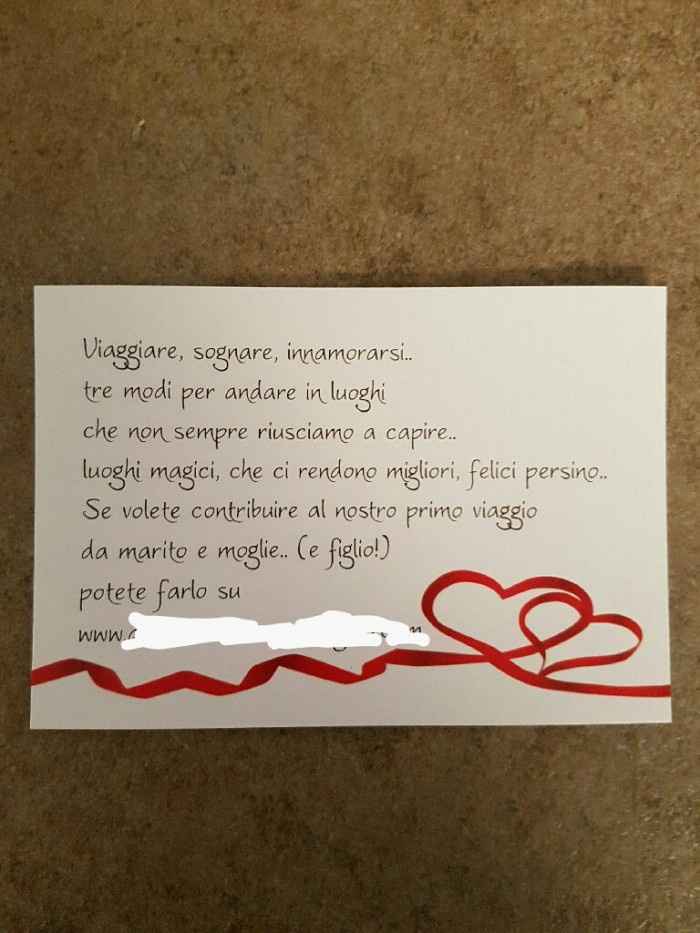 Viaggiare, sognare, innamorarsi..
tre modi per andare in luoghi
che non sempre riusciamo a capire..
luoghi magici, che ci rendono migliori, felici persino..
Se volete contribuire al nostro primo viaggio
da marito e moglie.. (e figlio!)
potete farlo su
www.